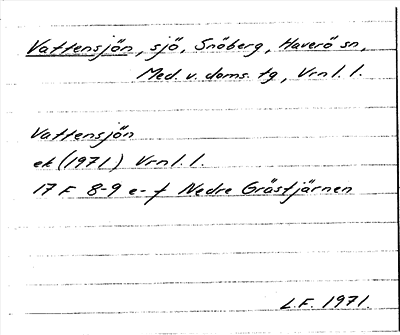 Vattensjön, sjö, Snöberg, Haverö sn,
Med. v. doms. tg, Vrnl. l.
Vattensjön
ek (1971) Vrnl. l.
17 F 8-9 e-f Nedre Gråstjärnen
L.F. 1971.